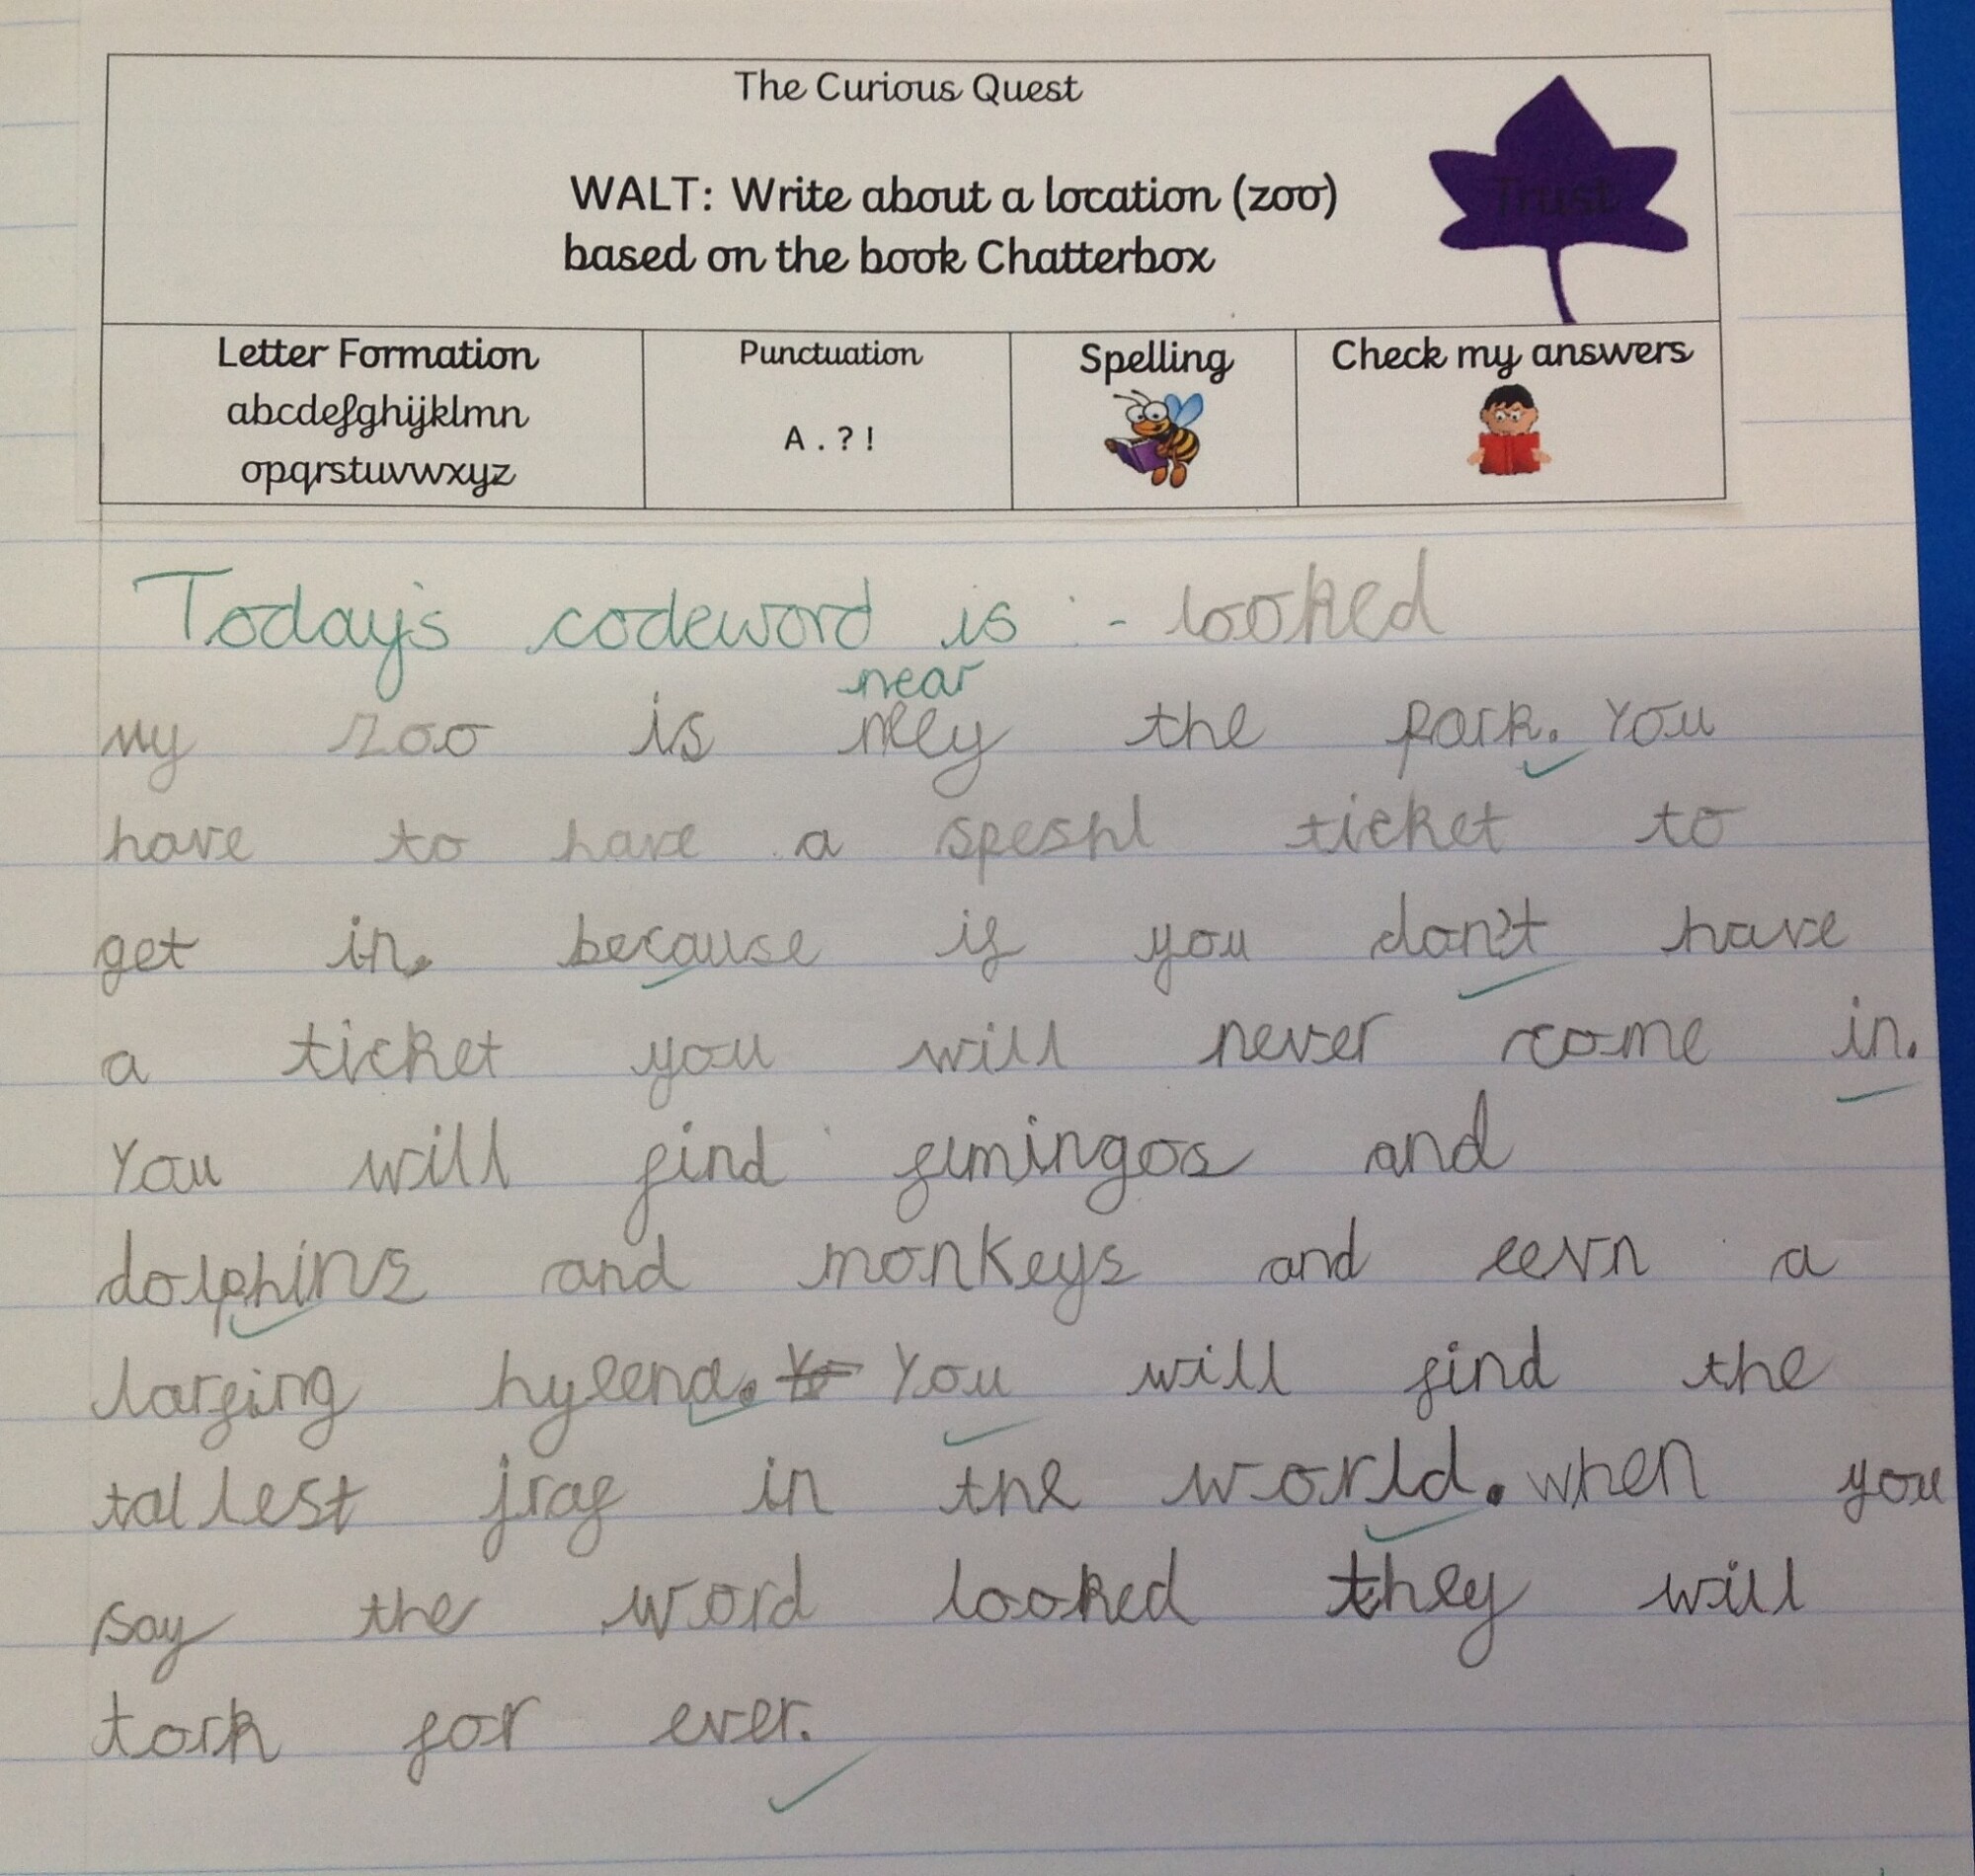 The Curious Quest
Trust
WALT: Write about a location (zoo)
based on the book Chatterbox
Letter Formation
abcdefghijklmn
opqrstuvwxyz
Punctuation
A . ? !
Spelling
Check my answers
Today's codeword is :- looked
near
My zoo is nlly the park. You
have to have a speshl ticket to
get in. because if you don't have
a ticket you will never come in.
You will find flmingos and
dolphins and monkeys and eevn a
larfing hyeena. Yo You will find the
tallest jraf in the world. when you
say the word looked they will
tork for ever.